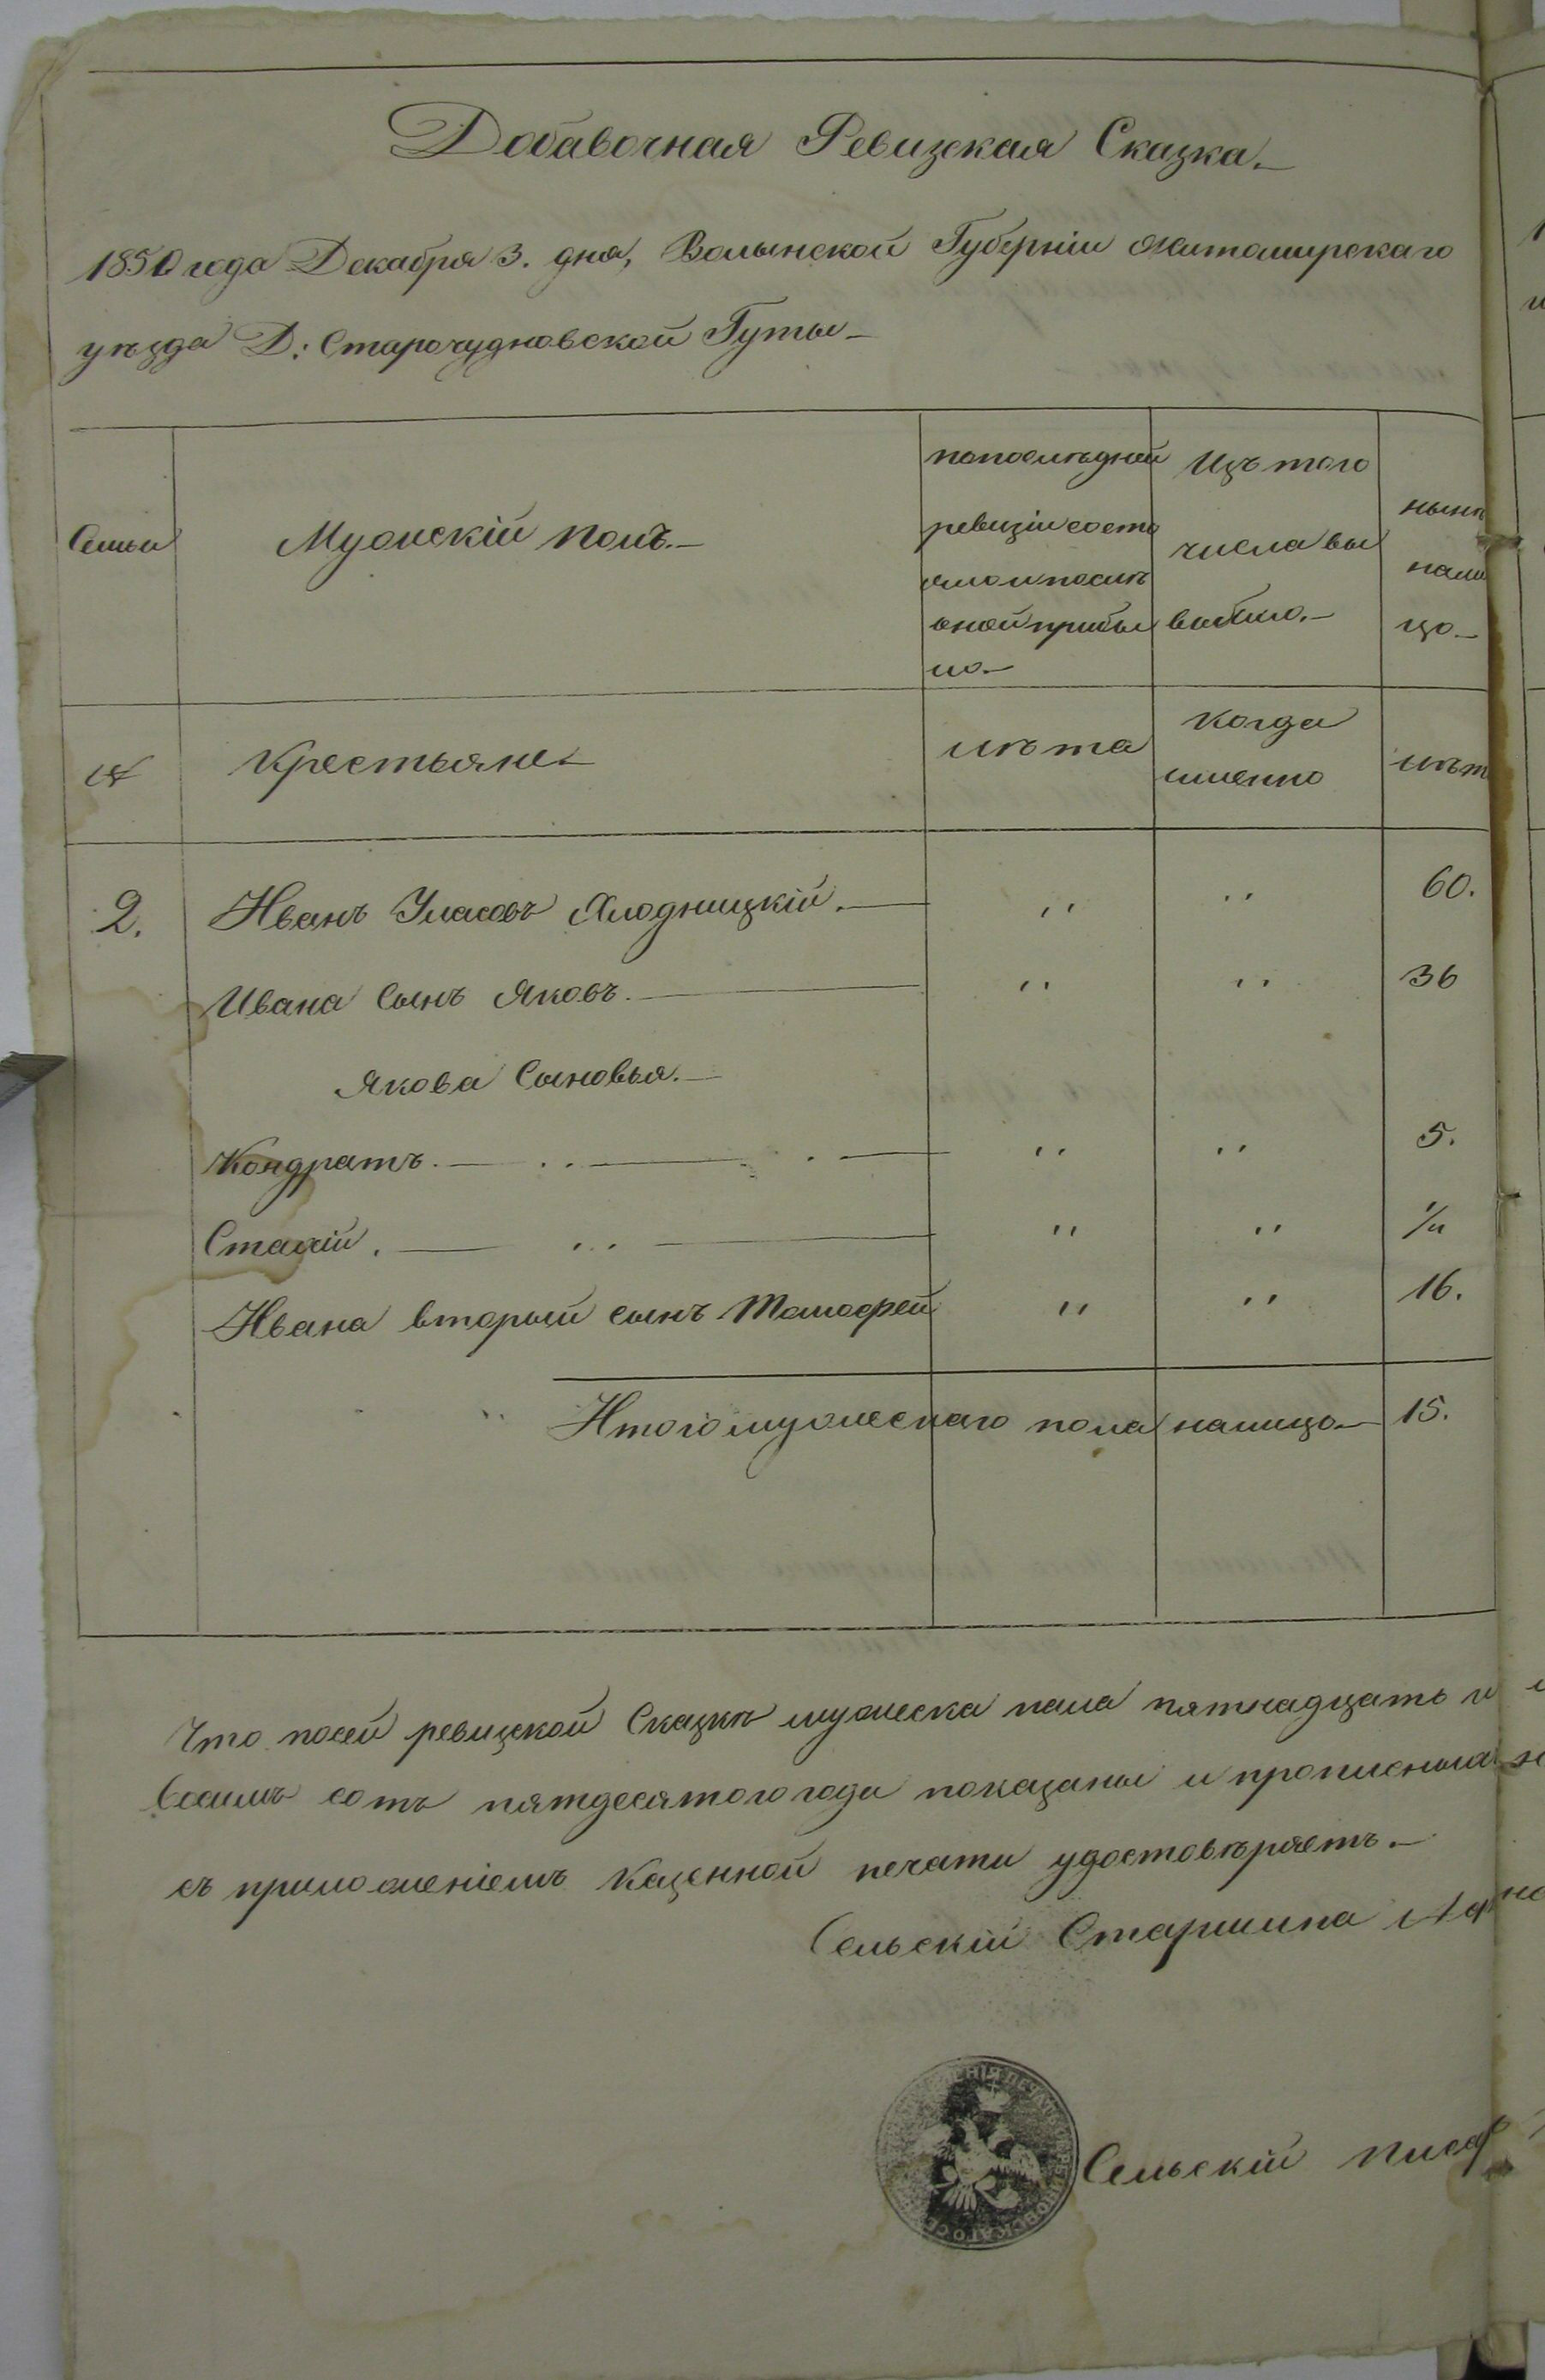 Добавочная Ревизская Сказка.
1850 года Декабря 3. дня, Волынской Губерніи Житомирскаго
уѣзда Д: Старочудновской Гуты
Семьи
Мужскій полъ.
попослѣдней
ревизіи состо
яло и послѣ
оной прибы
ло
Изъ того
числа вы
выбыло.
нынѣ
нали
цо
№
Крестьяне
лѣта
когда
именно
лѣт
2. Иванъ Уласовъ Хлодницкій. " " 60.
Ивана Сынъ Яковъ. " " 36
Якова Сыновья.
Кондратъ. " " 5.
Стахій. " "
Ивана вторый сынъ Тимофей " " 16.
Итого мужескаго пола налицо 15.
Что посей ревизской Сказкѣ мужеска пола пятнадцать и
Восимъ сотъ пятдесятого года показаны и прописныхъ
съ приложеніемъ Казенной печати удостовѣряетъ.
Сельскій Старшина
Сельскій писар